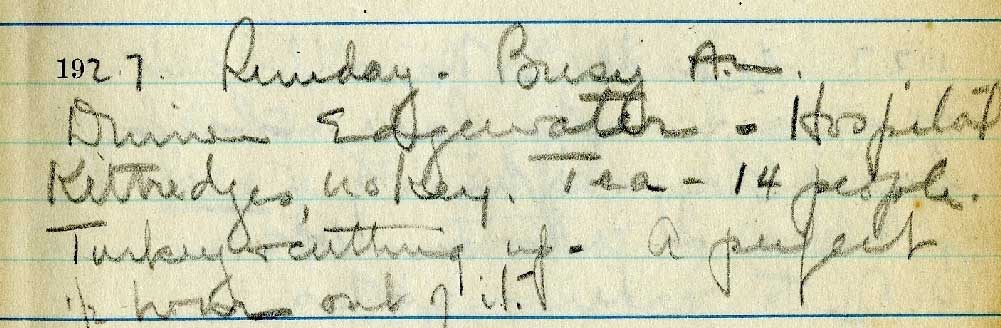 1927. Sunday. Busy A.M.
Dinner Edgewater - Hospital
Kittredges, no key. Tea - 14 people.
Turkey cutting up. A perfect
1/2 hour out of it.